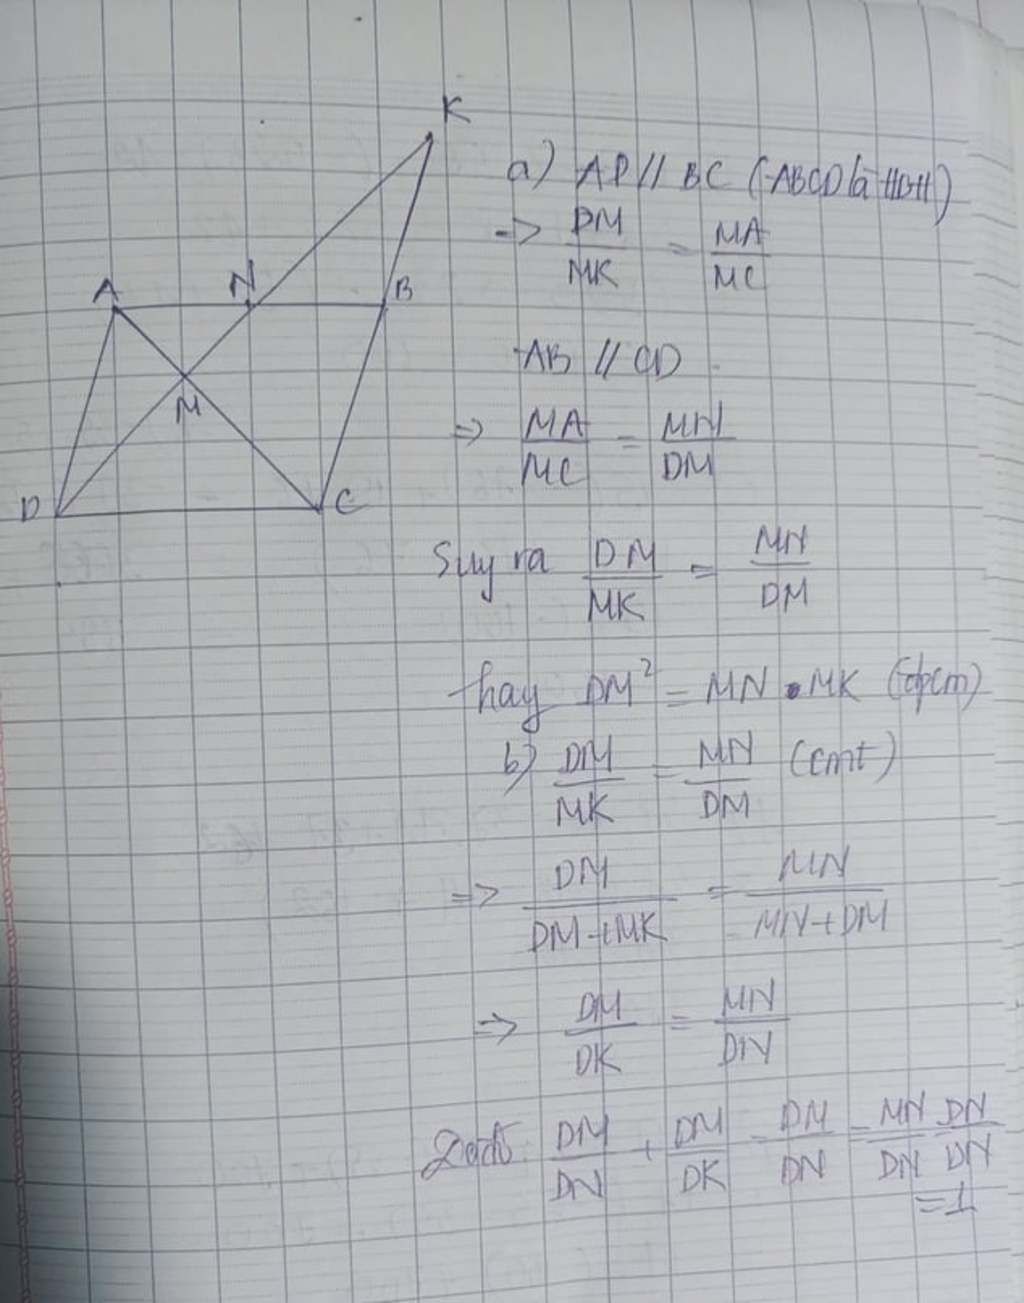 K
a) AD // BC (ABCD là HBH)
=> DM/MK = MA/MC
A N B
AB // CD
M
=> MA/MC = MN/DM
D C
Suy ra DM/MK = MN/DM
hay DM² = MN . MK (đpcm)
b) DM/MK = MN/DM (cmt)
=> DM/DM+MK = MN/MN+DM
=> DM/DK = MN/DN
Do đó DM/DN + DM/DK = DM/DN = MN/DN DN/DN
= 1